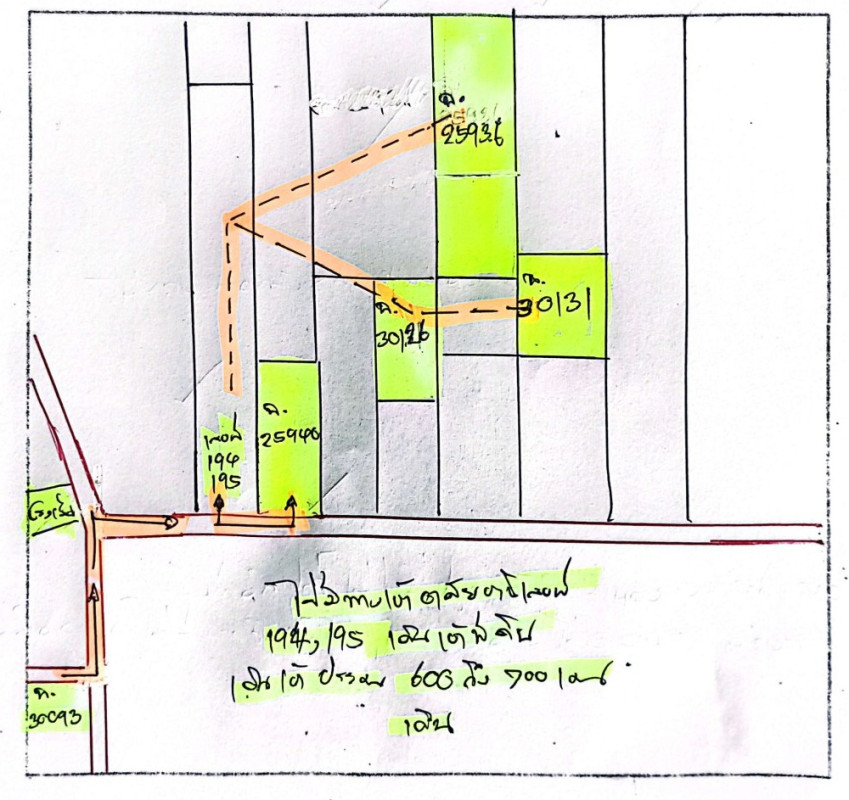 ฉ.
25936
ฉ.
30131
ฉ.
30126
ฉ.
25940
เลขที่
194
195
ไม่มีทางเข้า อาศัย
194, 195 เดินเข้าที่ดิน
เดินเข้าประมาณ 600 ถึง 700 เมตร
เดิน
ฉ.
30093